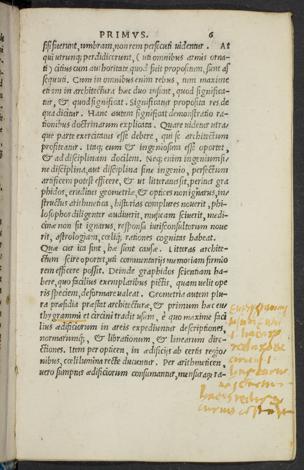 PRIMVS. 6
si fuerunt, umbram, non rem persecuti uidentur. At
qui utrunq; perdidicerunt, (uti omnibus armis orna-
ti) citius cum authoritate, quod fuit propositum, sunt as
sequuti. Cum in omnibus enim rebus, tum maxime
etiam in architectura hæc duo insunt, quod significa-
tur, & quod significat. Significatur proposita res de
qua dicitur. Hanc autem significat demonstratio ra-
tionibus doctrinarum explicata. Quare uidetur utra
que parte exercitatus esse debere, qui se architectum
profiteatur. Itaq; eum & ingeniosum esse oportet,
& ad disciplinam docilem. Neq; enim ingenium si-
ne disciplina, aut disciplina sine ingenio, perfectum
artificem potest efficere, & ut litteratus sit, peritus gra
phidos, eruditus geometriæ, & optices non ignarus, in-
structus arithmetica, historias complures nouerit, phi-
losophos diligenter audiuerit, musicam sciuerit, me di-
cinæ non sit ignarus, responsa iurisconsultorum noue
rit, astrologiam, cæliq; rationes cognitas habeat.
Quæ cur ita sint, hæ sunt causæ. Litteras architec-
tum scire oportet, uti commentarijs memoriam firmio
rem efficere possit. Deinde graphidos scientiam ha-
bere, quo facilius exemplaribus pictis, quam uelit ope
ris speciem, deformare ualeat. Geometria autem plu-
ra præsidia præstat architecturæ, & primum hac eu
thygrammi et circini tradit usum, è quo maxime faci
lius ædificiorum in areis expediuntur descriptiones,
normarumq;, & librationum, & linearum dire-
ctiones. Item per opticen, in ædificijs ab certis regio
nibus, cæli lumina recte ducuntur. Per arithmeticen,
uero sumptus ædificiorum consumantur, mensuraq; ra-